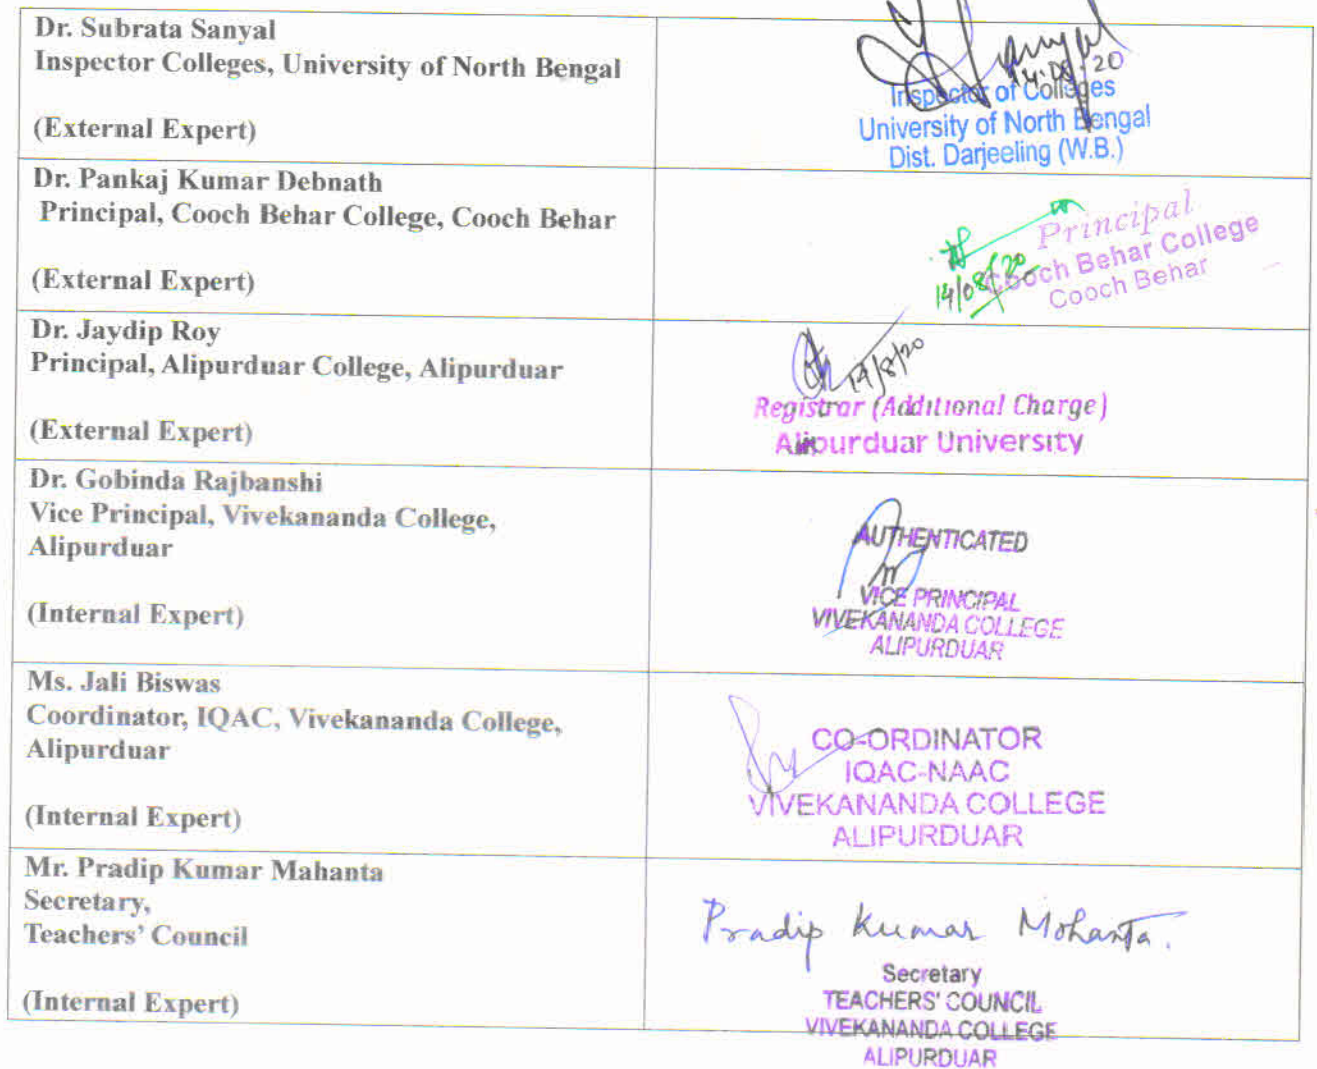 Dr. Subrata Sanyal
Inspector Colleges, University of North Bengal
(External Expert)
Sanyal
14.08.20
Inspector of Colleges
University of North Bengal
Dist. Darjeeling (W.B.)
Dr. Pankaj Kumar Debnath
Principal, Cooch Behar College, Cooch Behar
(External Expert)
14/08/20
Principal
Cooch Behar College
Cooch Behar
Dr. Jaydip Roy
Principal, Alipurduar College, Alipurduar
(External Expert)
14/8/20
Registrar (Additional Charge)
Alipurduar University
Dr. Gobinda Rajbanshi
Vice Principal, Vivekananda College,
Alipurduar
(Internal Expert)
AUTHENTICATED
VICE PRINCIPAL
VIVEKANANDA COLLEGE
ALIPURDUAR
Ms. Jali Biswas
Coordinator, IQAC, Vivekananda College,
Alipurduar
(Internal Expert)
CO-ORDINATOR
IQAC-NAAC
VIVEKANANDA COLLEGE
ALIPURDUAR
Mr. Pradip Kumar Mahanta
Secretary,
Teachers' Council
(Internal Expert)
Pradip Kumar Mohanta.
Secretary
TEACHERS' COUNCIL
VIVEKANANDA COLLEGE
ALIPURDUAR